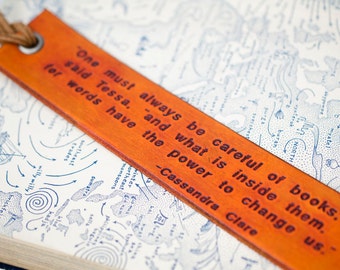 "One must always be careful of books,"
said Tessa, "and what is inside them,
for words have the power to change us."
-Cassandra Clare